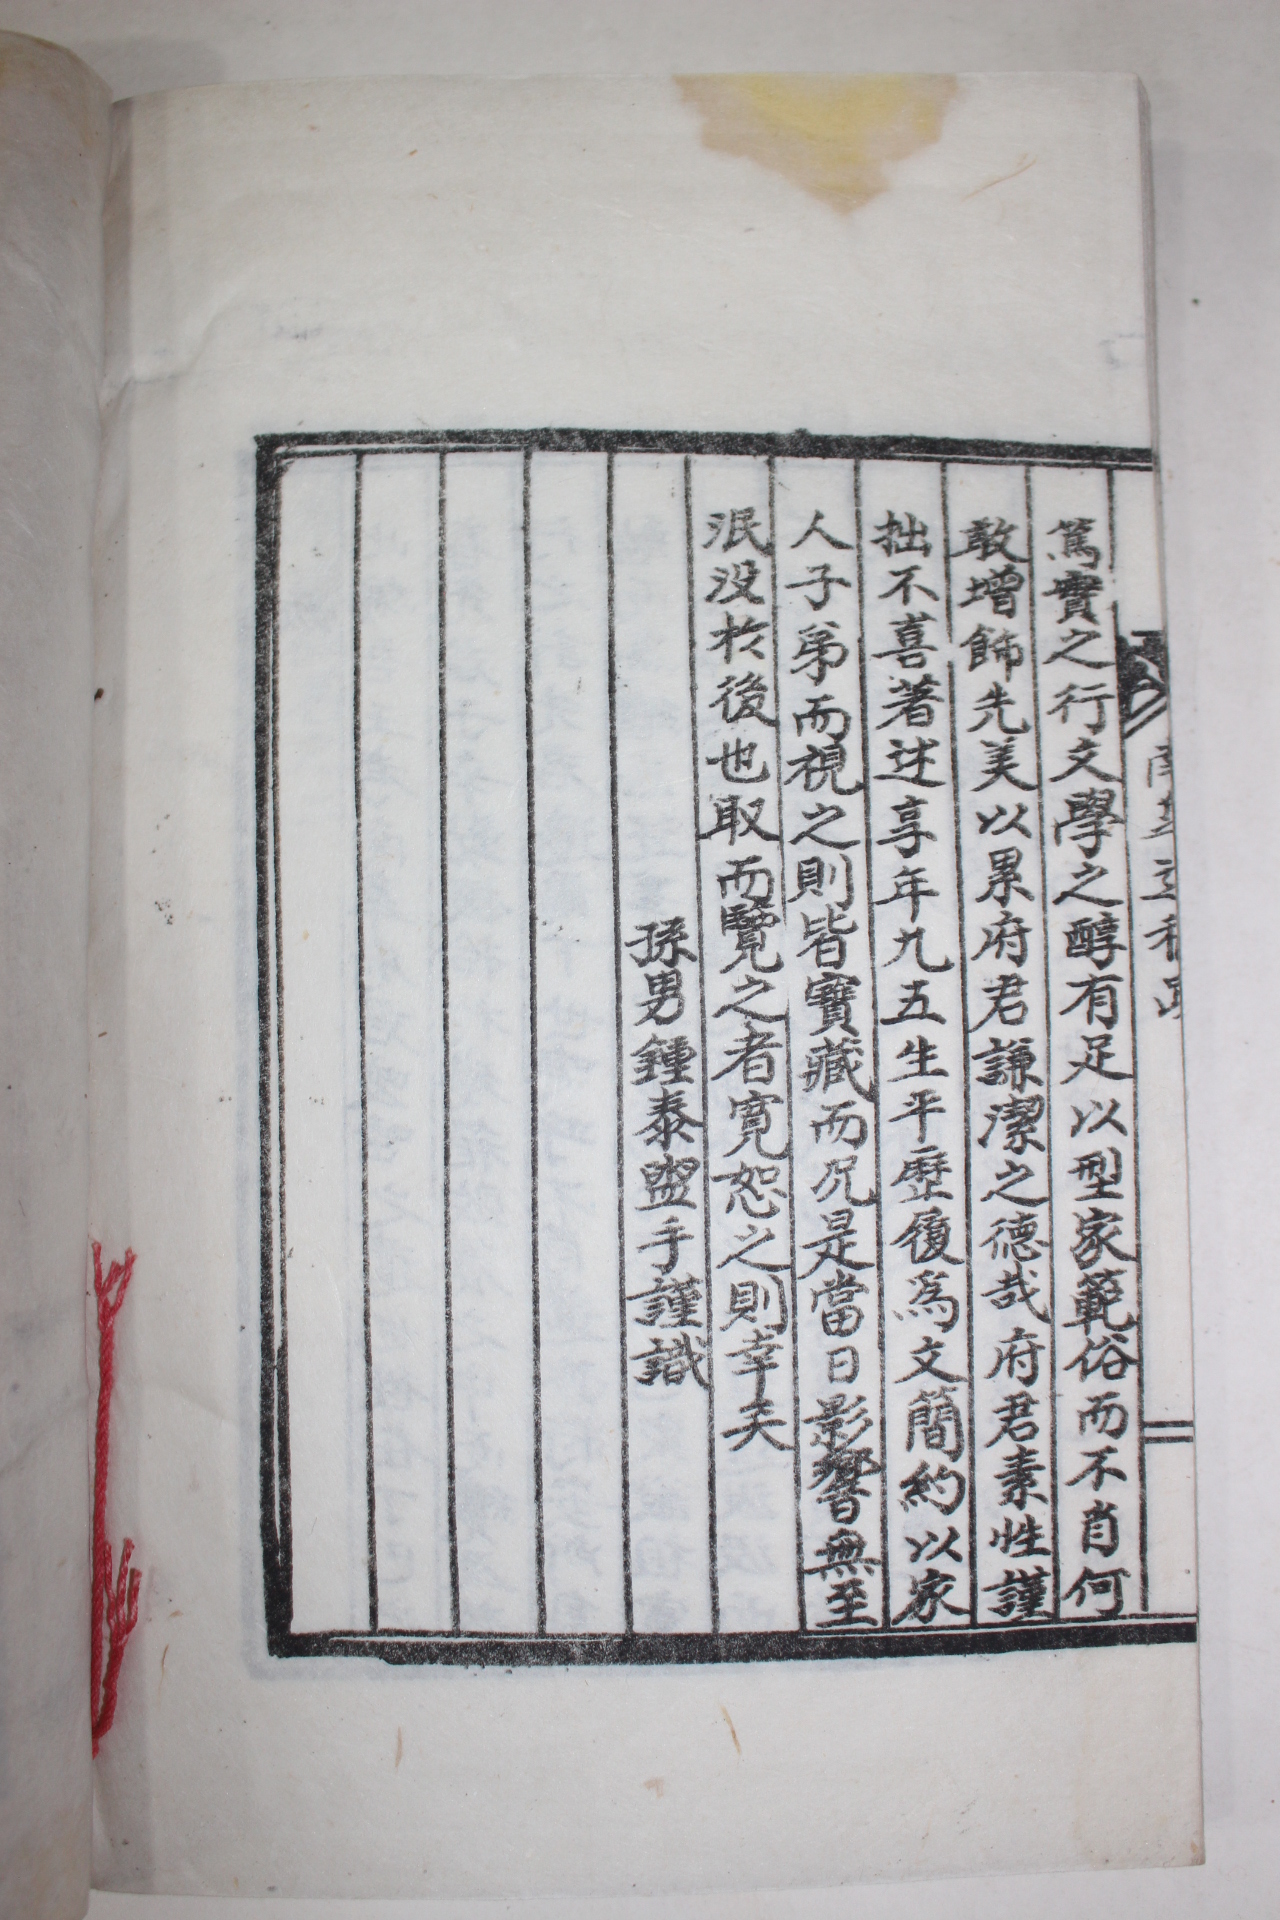 篤實之行文學之醇有足以型家範俗而不肖何
敢增餙先美以累府君謙潔之德哉府君素性謹
拙不喜著述享年九五生平歷履爲文簡約以家
人子弟而視之則皆寶藏而况是當日影響無至
泯没於後也取而覽之者寬恕之則幸矣
孫男鍾泰盥手謹識